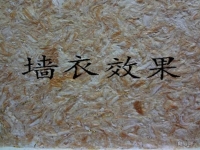 墙衣效果